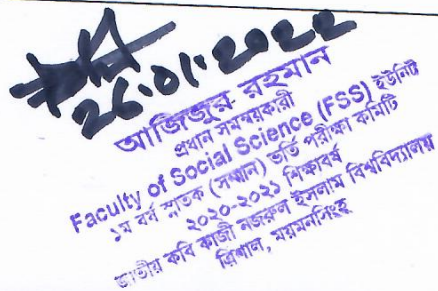 26.01.2022
আজিজুর রহমান
প্রধান সমন্বয়কারী
Faculty of Social Science (FSS) ইউনিট
১ম বর্ষ স্নাতক (সম্মান) ভর্তি পরীক্ষা কমিটি
২০২০-২০২১ শিক্ষাবর্ষ
জাতীয় কবি কাজী নজরুল ইসলাম বিশ্ববিদ্যালয়
ত্রিশাল, ময়মনসিংহ